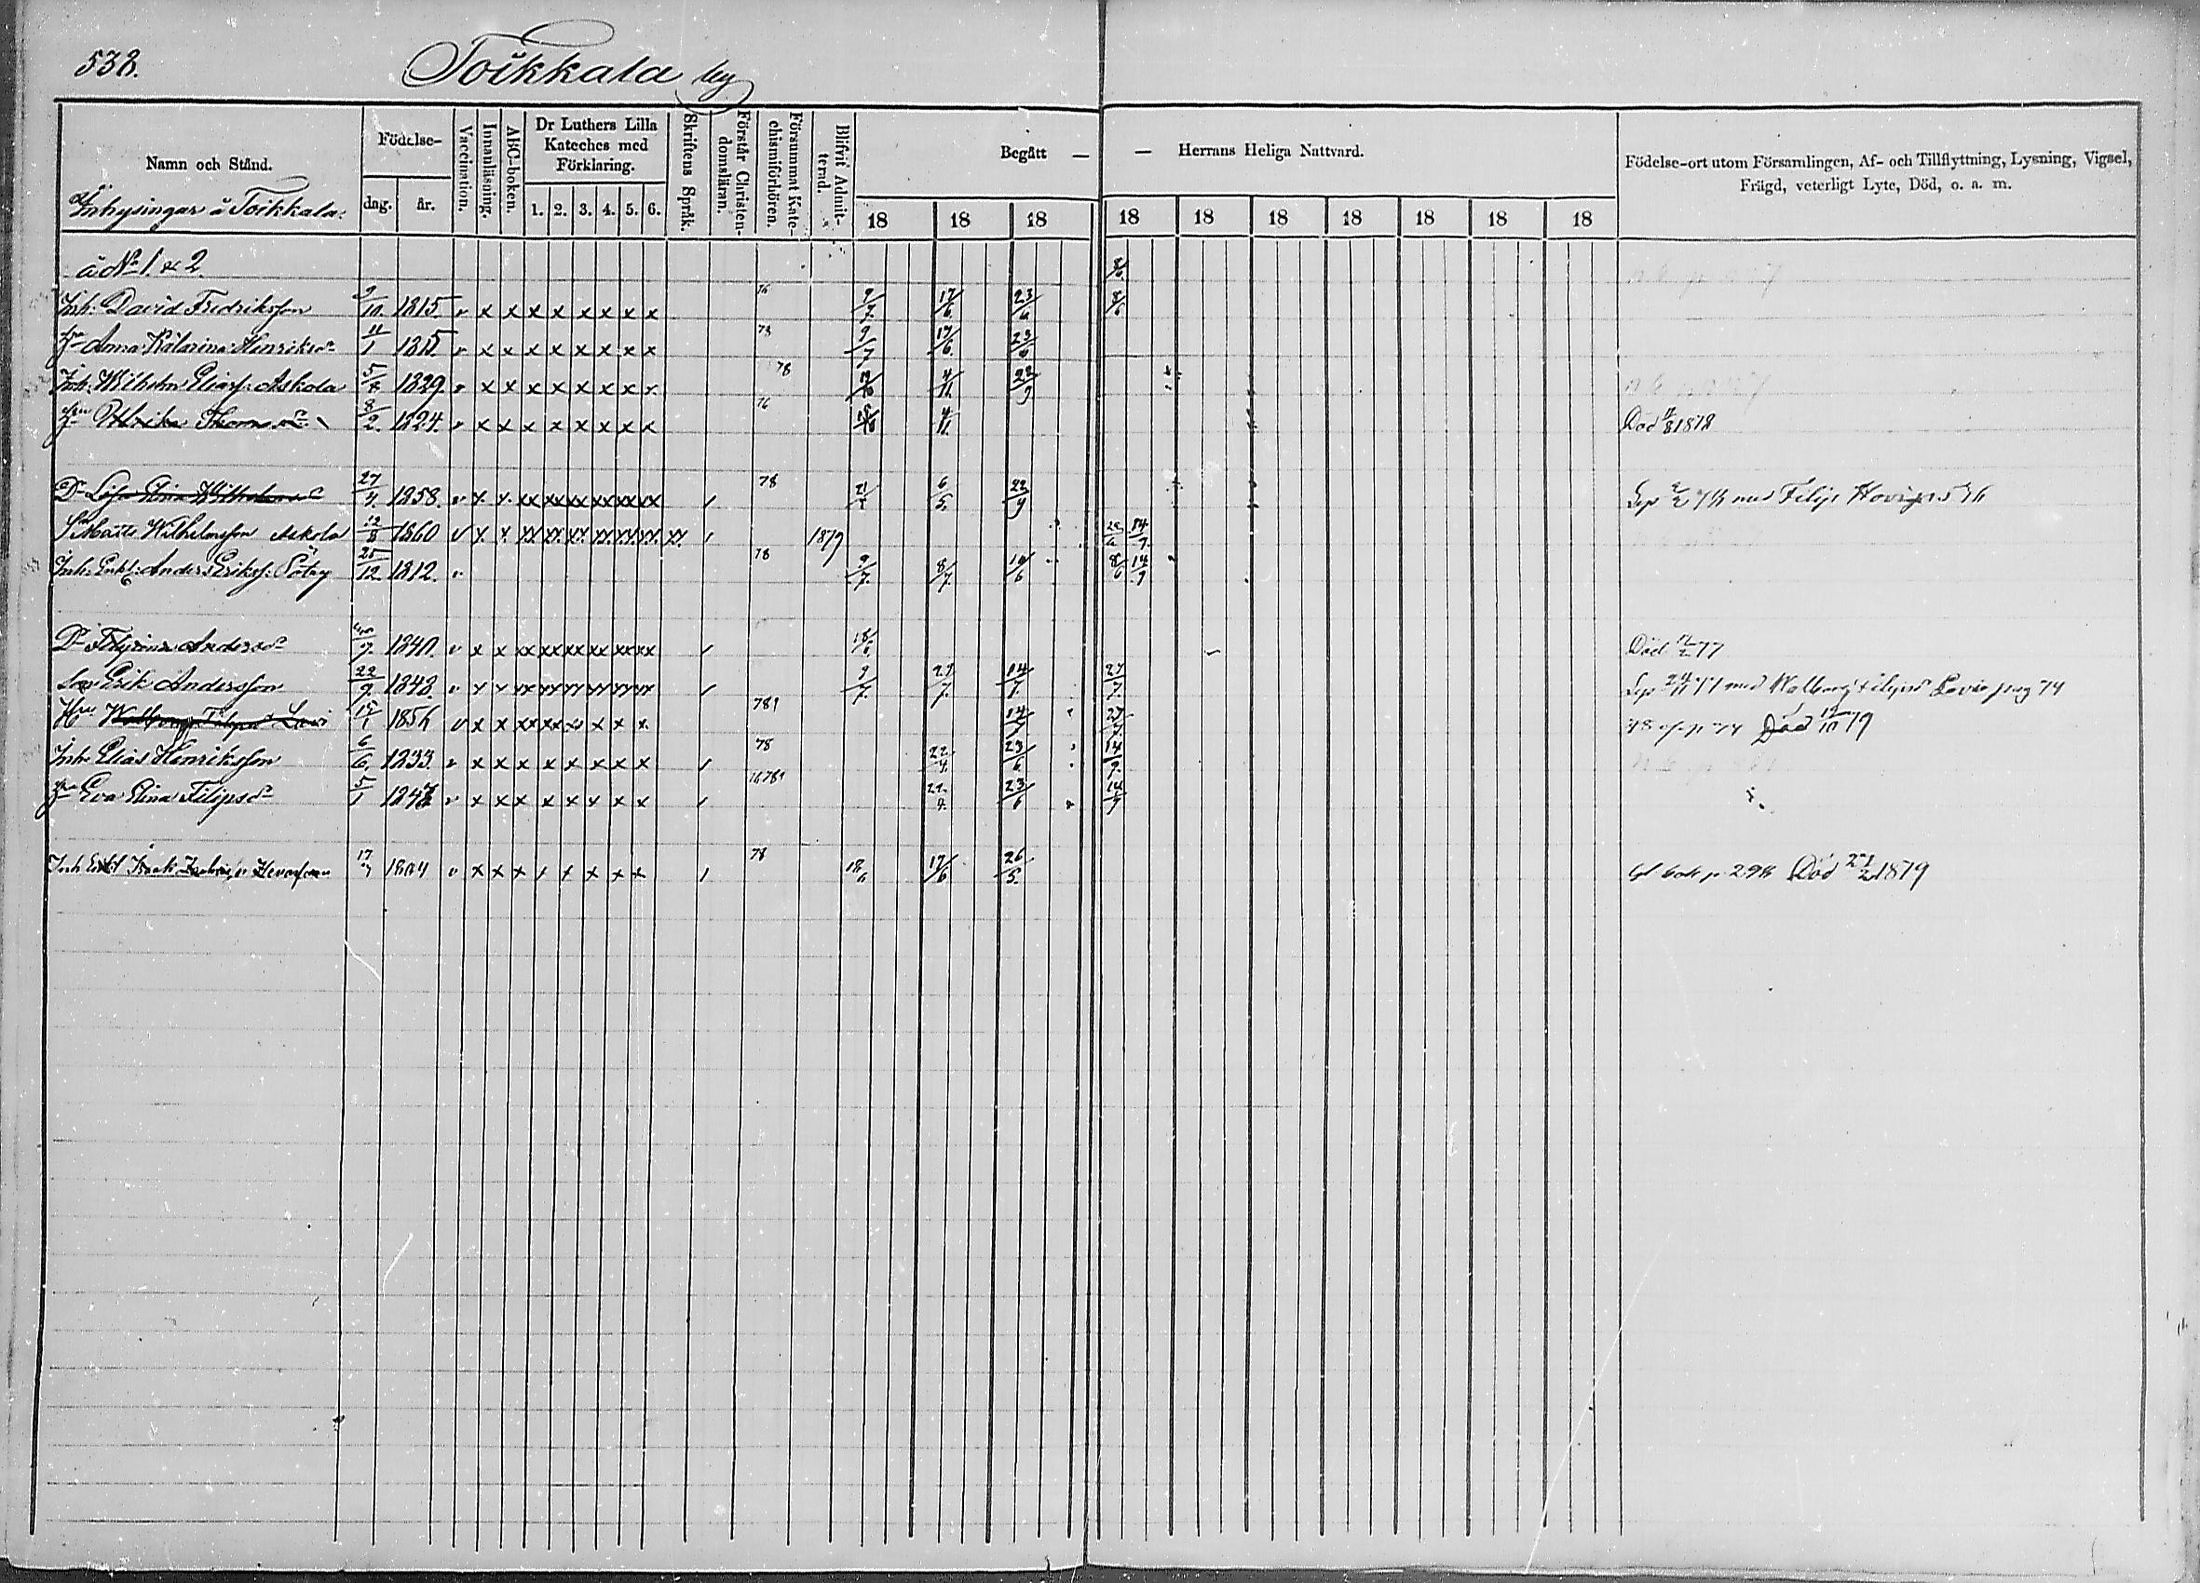 538.
Toikkala by
Namn och Stånd.
Födelse-
dag.
år.
Vaccination.
Innanläsning.
ABC-boken.
Dr Luthers Lilla Kateches med Förklaring.
1. 2. 3. 4. 5. 6.
Skriftens Språk.
Förstår Christendomsläran.
Försummat Katechismiförhören.
Blifvit Admitterad.
Begått — — Herrans Heliga Nattvard.
18 18 18 18 18 18 18 18 18 18
Födelse-ort utom Församlingen, Af- och Tillflyttning, Lysning, Vigsel,
Frägd, veterligt Lyte, Död, o. a. m.
Inhysingar å Toikkala:
å No 1 & 2.
Inh. David Fredriksson 9/10 1815. v x x x x x x x x 76 9/7. 17/6. 23/6 8/6
Anna Katarina Henriksdr 11/1 1815. v x x x x x x x x 78 9/7 17/6. 23/6
Inh. Wilhelm Eliass. Askola 1829. v x x x x x x x x 78 4/11. 22/9
Ulrika Thomasdr 8/2. 1824. v x x x x x x x x 76 4/11. Död 1878
Dr Lisa Stina Wilhelmsd 27/4. 1858. v x x xx xx xx xx xx xx 78 6/5. 22/9 med Filip
Sn Matts Wilhelmsson Askola 12/8 1860 v x x xx xx xx xx xx xx xx 1879 14/9.
Inh. Enkl: Anders Erikss: 25/12 1812. v 78 9/7. 8/7. 10/6 8/6 14/9
Dr Andersdr 1840. v x x xx xx xx xx xx xx 18/6. Död 77
Son Erik Andersson 22/9. 1848. v x x xx xx xx xx xx xx 9/7. 27/7. 14/7. 27/7. 24/11 77 med Walborg Filipsd pag 74
Hu Walborg Filipsd 15/1 1856 v x x 781 14/7 27/7. p 74 Död 79
Inh. Elias Henriksson 6/6 1833 v x x x x x x x x 78 22/4. 23/6. 14/9.
Eva Stina Filipsdr 5/1 184 v x x x x x x x x 76 781 22/4. 23/6 14/9
Inh Enkl Isak 17/7 1804 v x x x x x x x x 78 18/6 17/6 26/5. p. 296 Död 21/2 1879